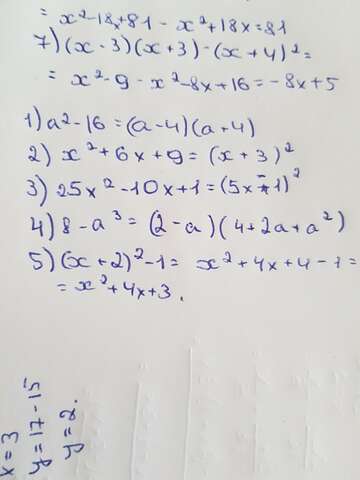 = x²-18x+81 - x²+18x=81
7)(x-3)(x+3)-(x+4)²=
= x²-9-x²-8x+16=-8x+5
1) a²-16=(a-4)(a+4)
2) x²+6x+9=(x+3)²
3) 25x²-10x+1=(5x-1)²
4) 8-a³=(2-a)(4+2a+a²)
5)(x+2)²-1= x²+4x+4-1=
= x²+4x+3.
x=3
y=17-15
y=2.